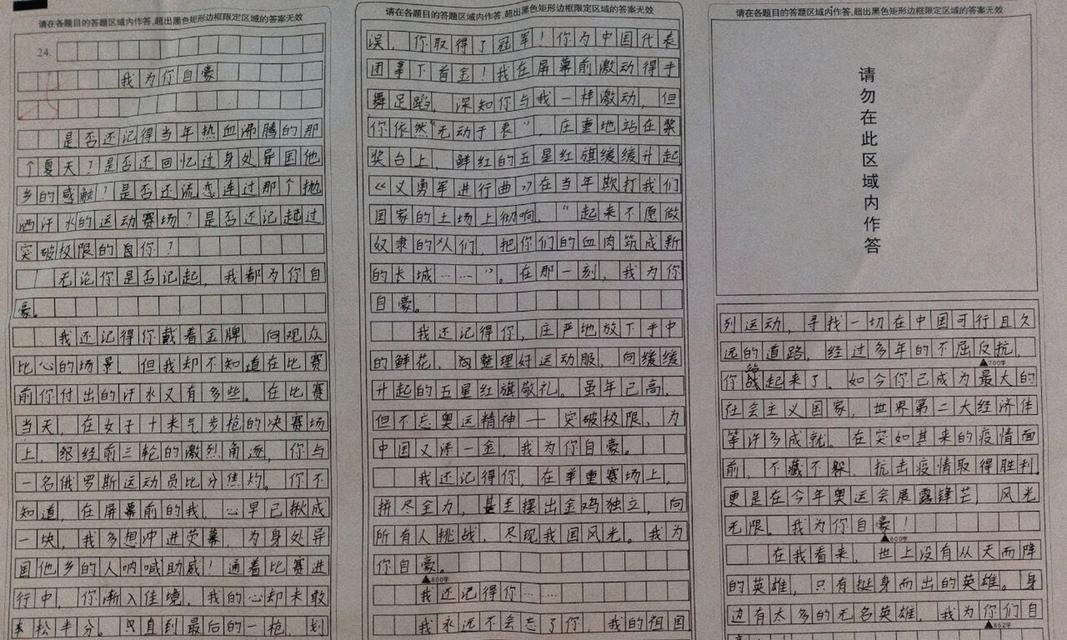 请在各题目的答题区域内作答,超出黑色矩形边框限定区域的答案无效
24.
我为你自豪
是否还记得当年热血沸腾的那
个夏天？是否还回忆过身处异国他
乡的感触？是否还流恋连过那个抛
洒汗水的运动赛场？是否还记起过
突破极限的自你？
无论你是否记起，我都为你自
豪。
我还记得你戴着金牌，向观众
比心的场景。但我却不知道在比赛
前你付出的汗水又有多些。在比赛
当天，在女子十米气步枪的决赛场
上，经前三轮的激烈角逐，你与
一名俄罗斯运动员比分焦灼。你不
知道，在屏幕前的我，心早已揪成
一块，我多想冲进荧幕，为身处异
国他乡的人呐喊助威！随着比赛进
行中，你渐入佳境，我的心却未敢
松半分。直到最后的一枪，
请在各题目的答题区域内作答,超出黑色矩形边框限定区域的答案无效
误，你取得了冠军！你为中国代表
团拿下首金！我在屏幕前激动得手
舞足蹈，深知你与我一样激动，但
你依然“无动于衷”，庄重地站在奖
奖台上，鲜红的五星红旗缓缓升起
《义勇军进行曲》在当年欺打我们
国家的土场上彻响，“起来不愿做
奴隶的人们，把你们的血肉筑成新
的长城……”。在那一刻，我为你
自豪。
我还记得你，庄严地放下手中
的鲜花，整理好运动服，向缓缓
升起的五星红旗敬礼。虽年已高，
但不忘奥运精神——突破极限，为
中国又添一金，我为你自豪。
我还记得你，在举重赛场上，
拼尽全力，甚至摆出金鸡独立，向
所有人挑战，尽现我国风光。我为
你自豪。
▲600字
我还记得你……
我永远不会忘了你，我的祖国
请在各题目的答题区域内作答,超出黑色矩形边框限定区域的答案无效
请勿在此区域内作答
列运动，寻找一切在中国可行且久
远的道路，经过多年的不屈反抗，
▲700字
你站起来了。如今你已成为最大的
社会主义国家，世界第二大经济体
等许多成就。在突如其来的疫情面
前，不藏不躲，抗击疫情取得胜利。
更是在今年奥运会展露锋芒，风光
无限。我为你自豪！
▲800字
在我看来，世上没有从天而降
的英雄，只有挺身而出的英雄。身
边有太多的无名英雄，我为你们自
▲862字